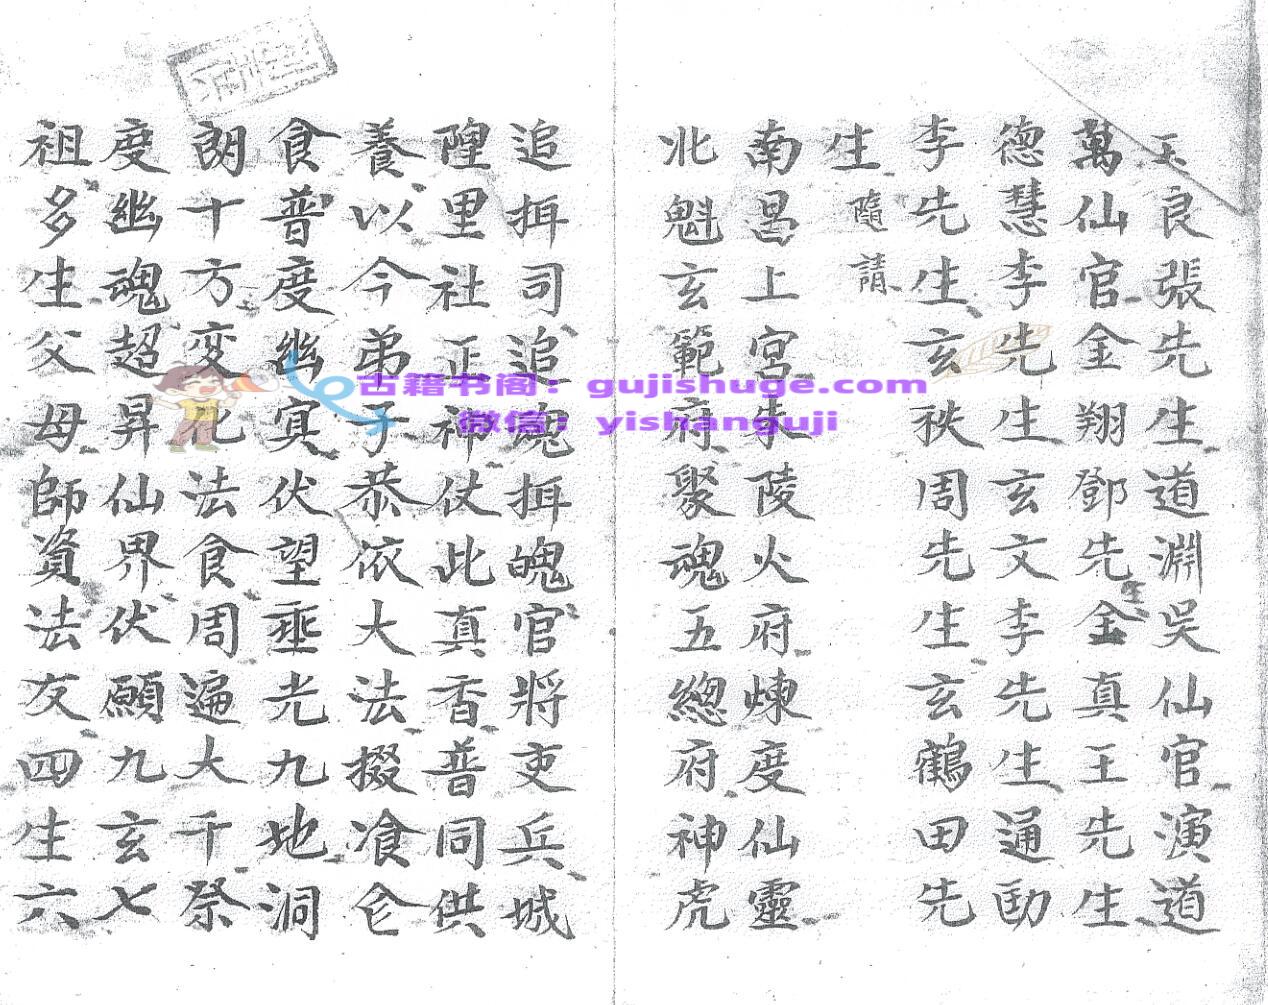 玉良張先生道淵吳仙官演道
萬仙官金翔鄧先生金真王先生
德慧李先生玄文李先生通勐
李先生玄秋周先生玄鶴田先
生隨請
南昌上宮朱陵火府煉度仙靈
北魁玄範府聚魂五總府神虎
追捛司追魂捛魄官將吏兵城
隍里社正神仗此真香普同供
養以今弟子恭依大法掇飡仺
食普度幽冥伏望垂光九地洞
朗十方变化法食周遍大千祭
度幽魂超昇仙界伏願九玄七
祖多生父母師資法友四生六
古籍书阁：gujishuge.com
微信：yishanguji